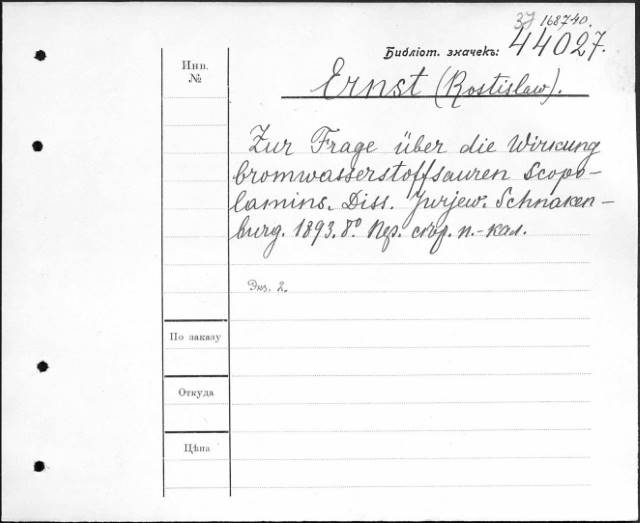 37 168740.
Библіот. значекъ: 44027.
Инв.
№
Ernst (Rostislaw).
Zur Frage über die Wirkung
bromwasserstoffsauren Scopo-
lamins. Diss. Jurjew. Schnaken-
burg. 1893. 8º Пер. сбор. п.-кал.
Экз. 2.
По заказу
Откуда
Цѣна